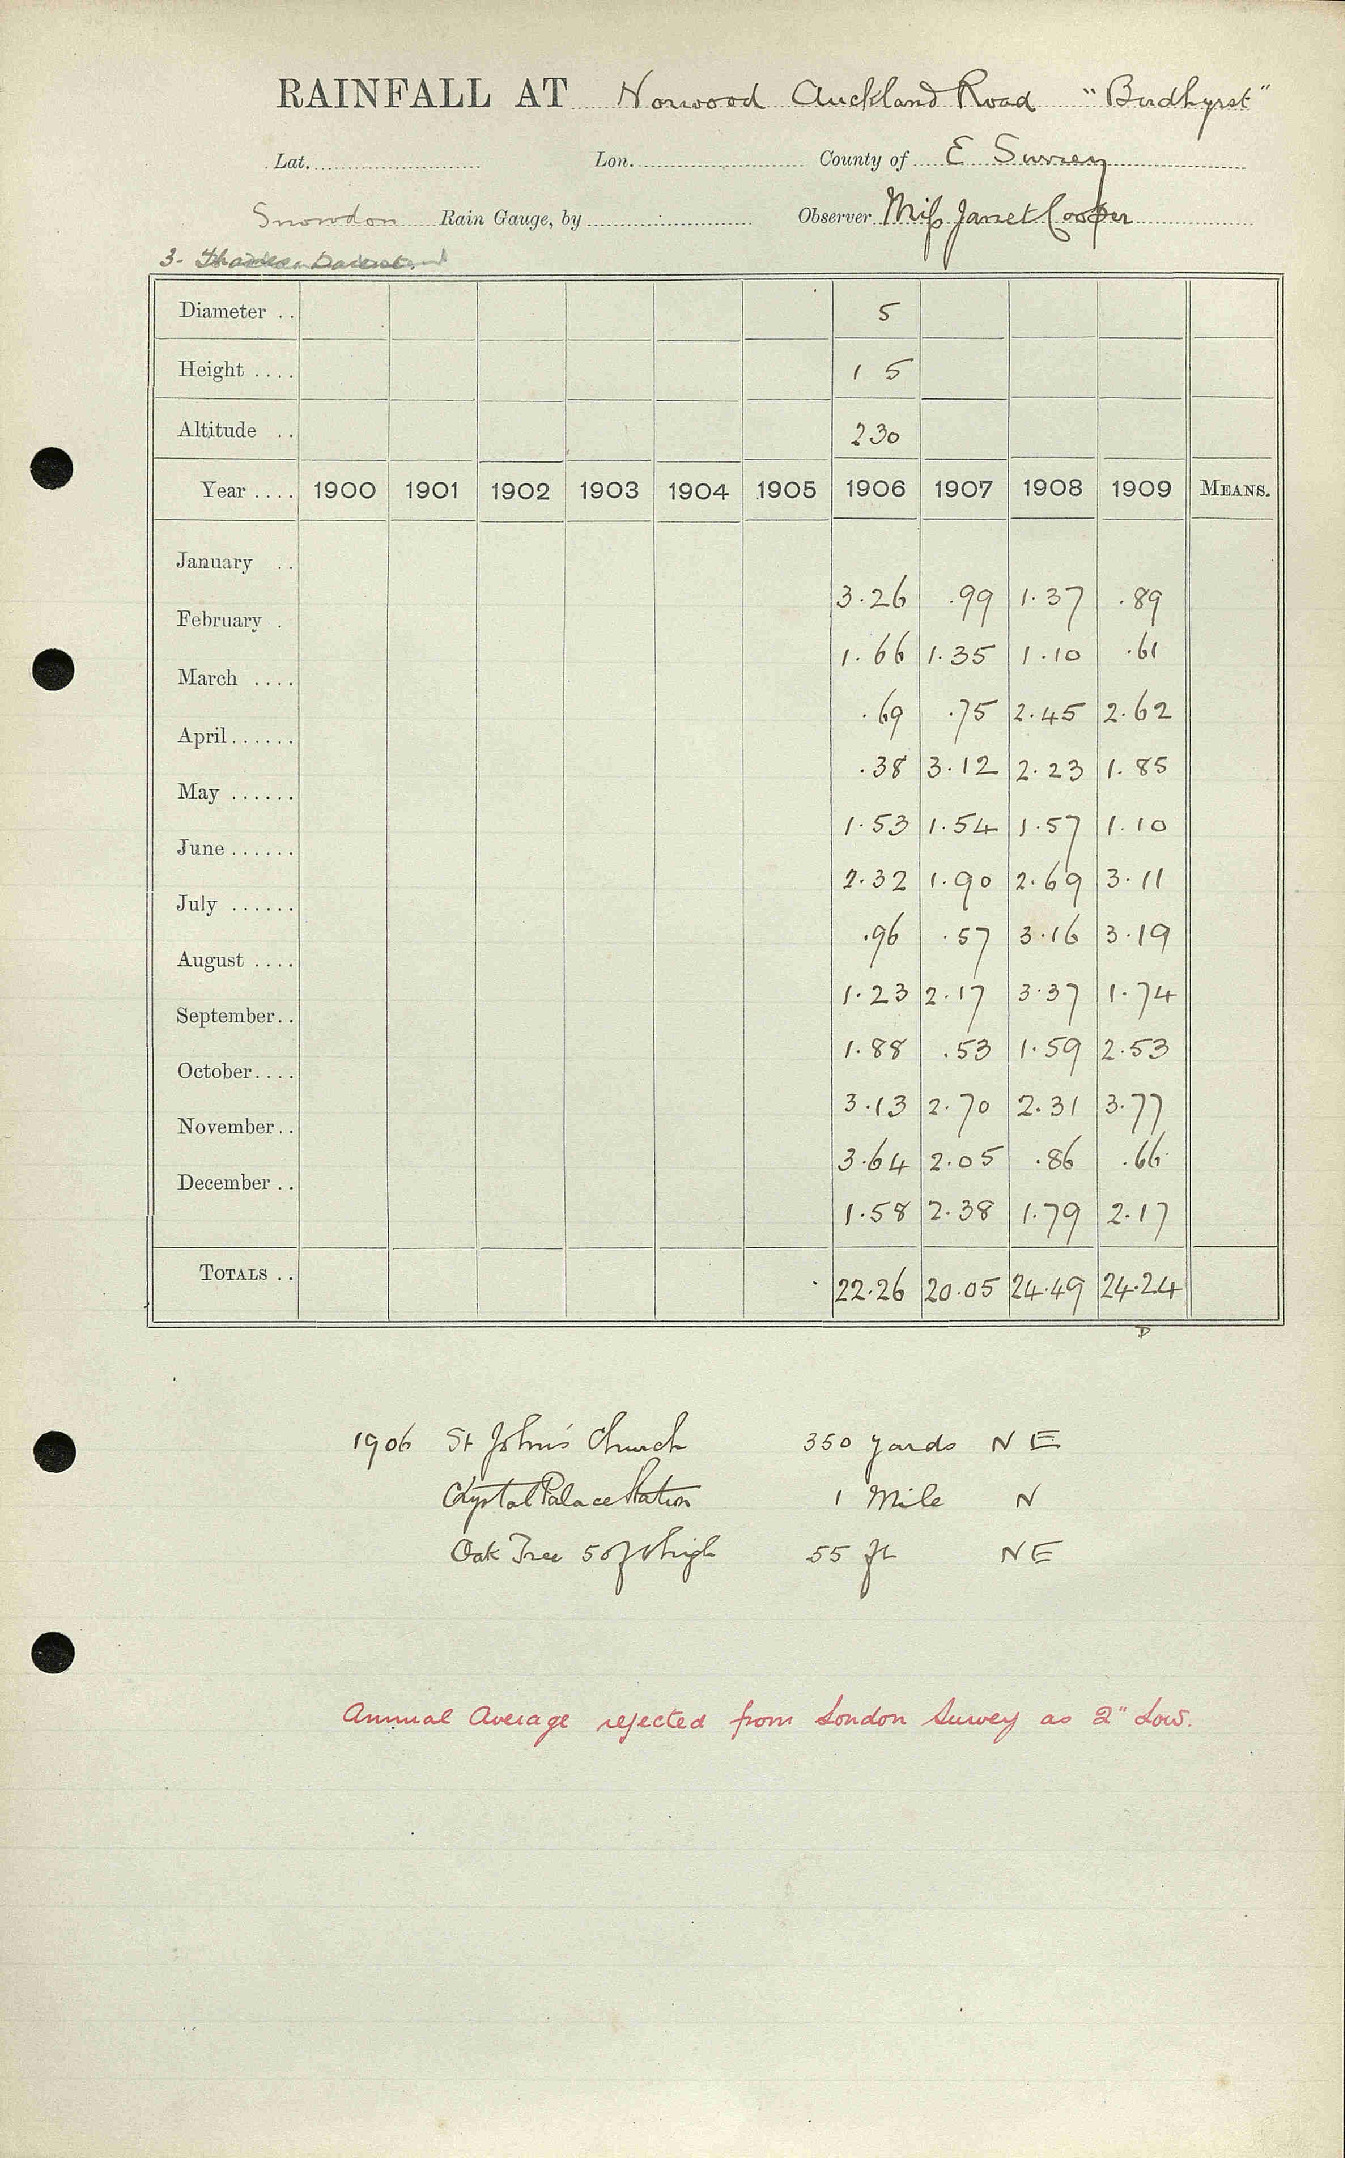 RAINFALL AT Norwood Auckland Road "Birdhyrst"
Lat. Lon. County of E Surrey
Snowdon Rain Gauge, by Observer Miss Janet Cooper
3.
Diameter .. 5
Height .... 1 5
Altitude .. 230
Year .... 1900 1901 1902 1903 1904 1905 1906 1907 1908 1909 MEANS.
January .. 3.26 .99 1.37 .89
February . 1.66 1.35 1.10 .61
March .... .69 .75 2.45 2.62
April...... .38 3.12 2.23 1.85
May ...... 1.53 1.54 1.57 1.10
June ...... 2.32 1.90 2.69 3.11
July ...... .96 .57 3.16 3.19
August .... 1.23 2.17 3.37 1.74
September.. 1.88 .53 1.59 2.53
October.... 3.13 2.70 2.31 3.77
November.. 3.64 2.05 .86 .66
December .. 1.58 2.38 1.79 2.17
TOTALS .. 22.26 20.05 24.49 24.24
D
1906 St John's Church 350 yards N E
Crystal Palace Station 1 Mile N
Oak Tree 50ft high 55 ft NE
Annual Average rejected from London Survey as 2" Low.